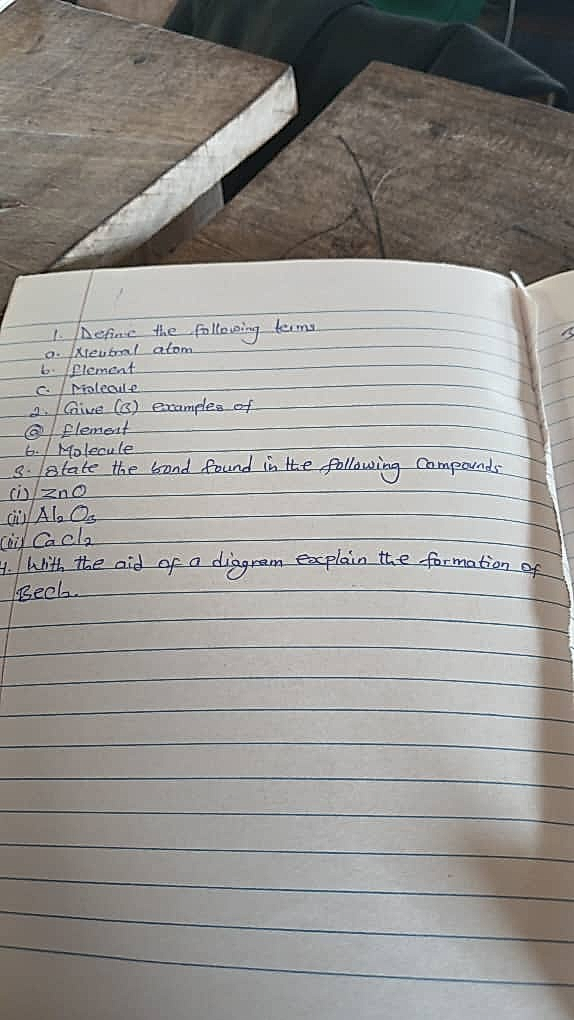 1. Define the following terms
a. Neutral atom
b. Element
c. Molecule
2. Give (3) examples of
@ Element
b. Molecule
3. State the bond found in the following Compounds
(i) ZnO
(ii) Al2O3
(iii) CaCl2
4. With the aid of a diagram explain the formation of
Becl2.